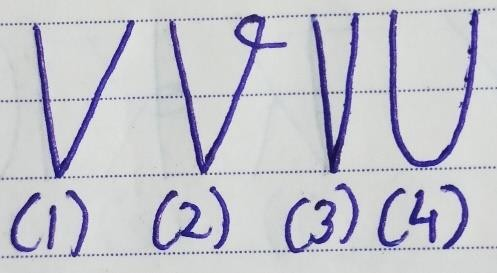 V V V U
(1) (2) (3) (4)